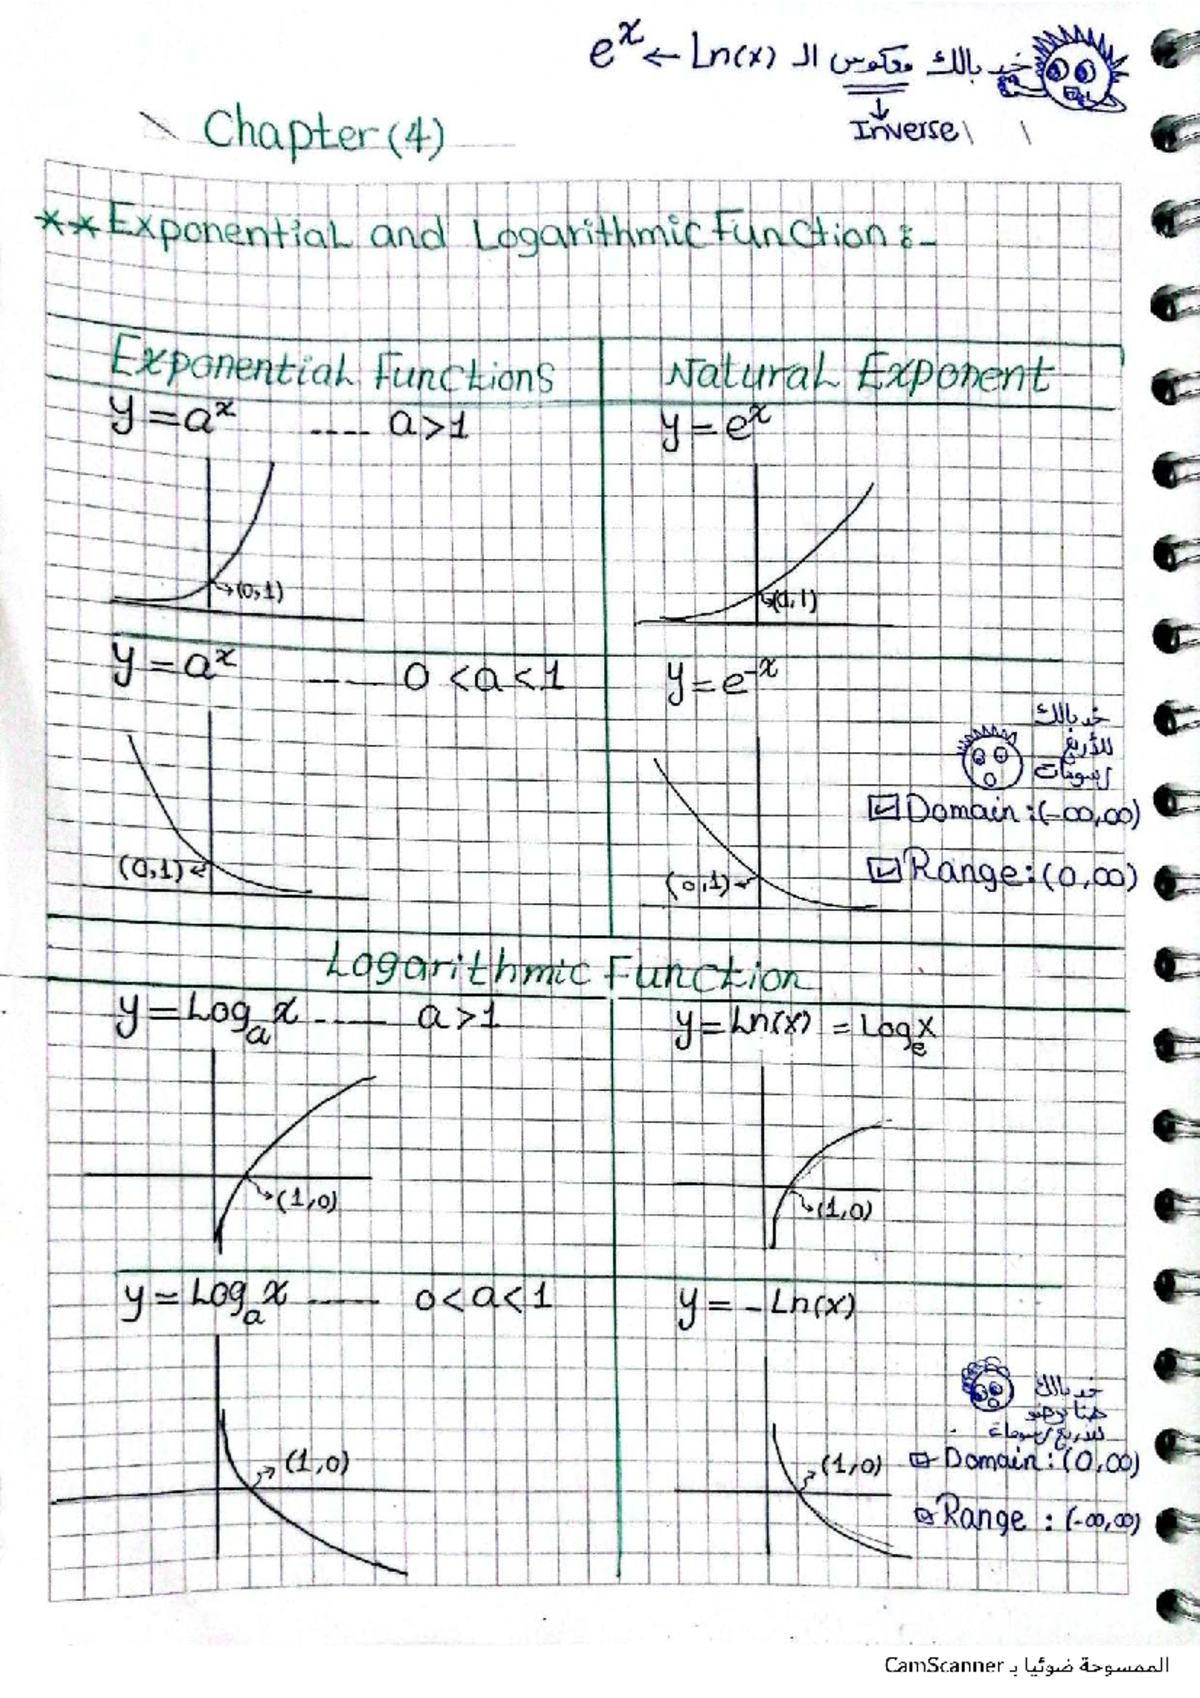 خد بالك معكوس الـ Ln(x) ← e^x
Inverse
Chapter (4)
** Exponential and Logarithmic Function :-
Exponential Functions
Natural Exponent
y = a^x ---- a>1
y = e^x
(0,1)
(0,1)
y = a^x ---- 0<a<1
y = e^-x
خد بالك
للأربع
رسومات
Domain : (-∞,∞)
Range : (0,∞)
(0,1)
(0,1)
Logarithmic Function
y = Log_a x ---- a>1
y = Ln(x) = Log_e x
(1,0)
(1,0)
y = Log_a x ---- 0<a<1
y = - Ln(x)
خد بالك
هنا برضو
للأربع رسومات
(1,0)
(1,0)
Domain : (0,∞)
Range : (-∞,∞)
الممسوحة ضوئيا بـ CamScanner